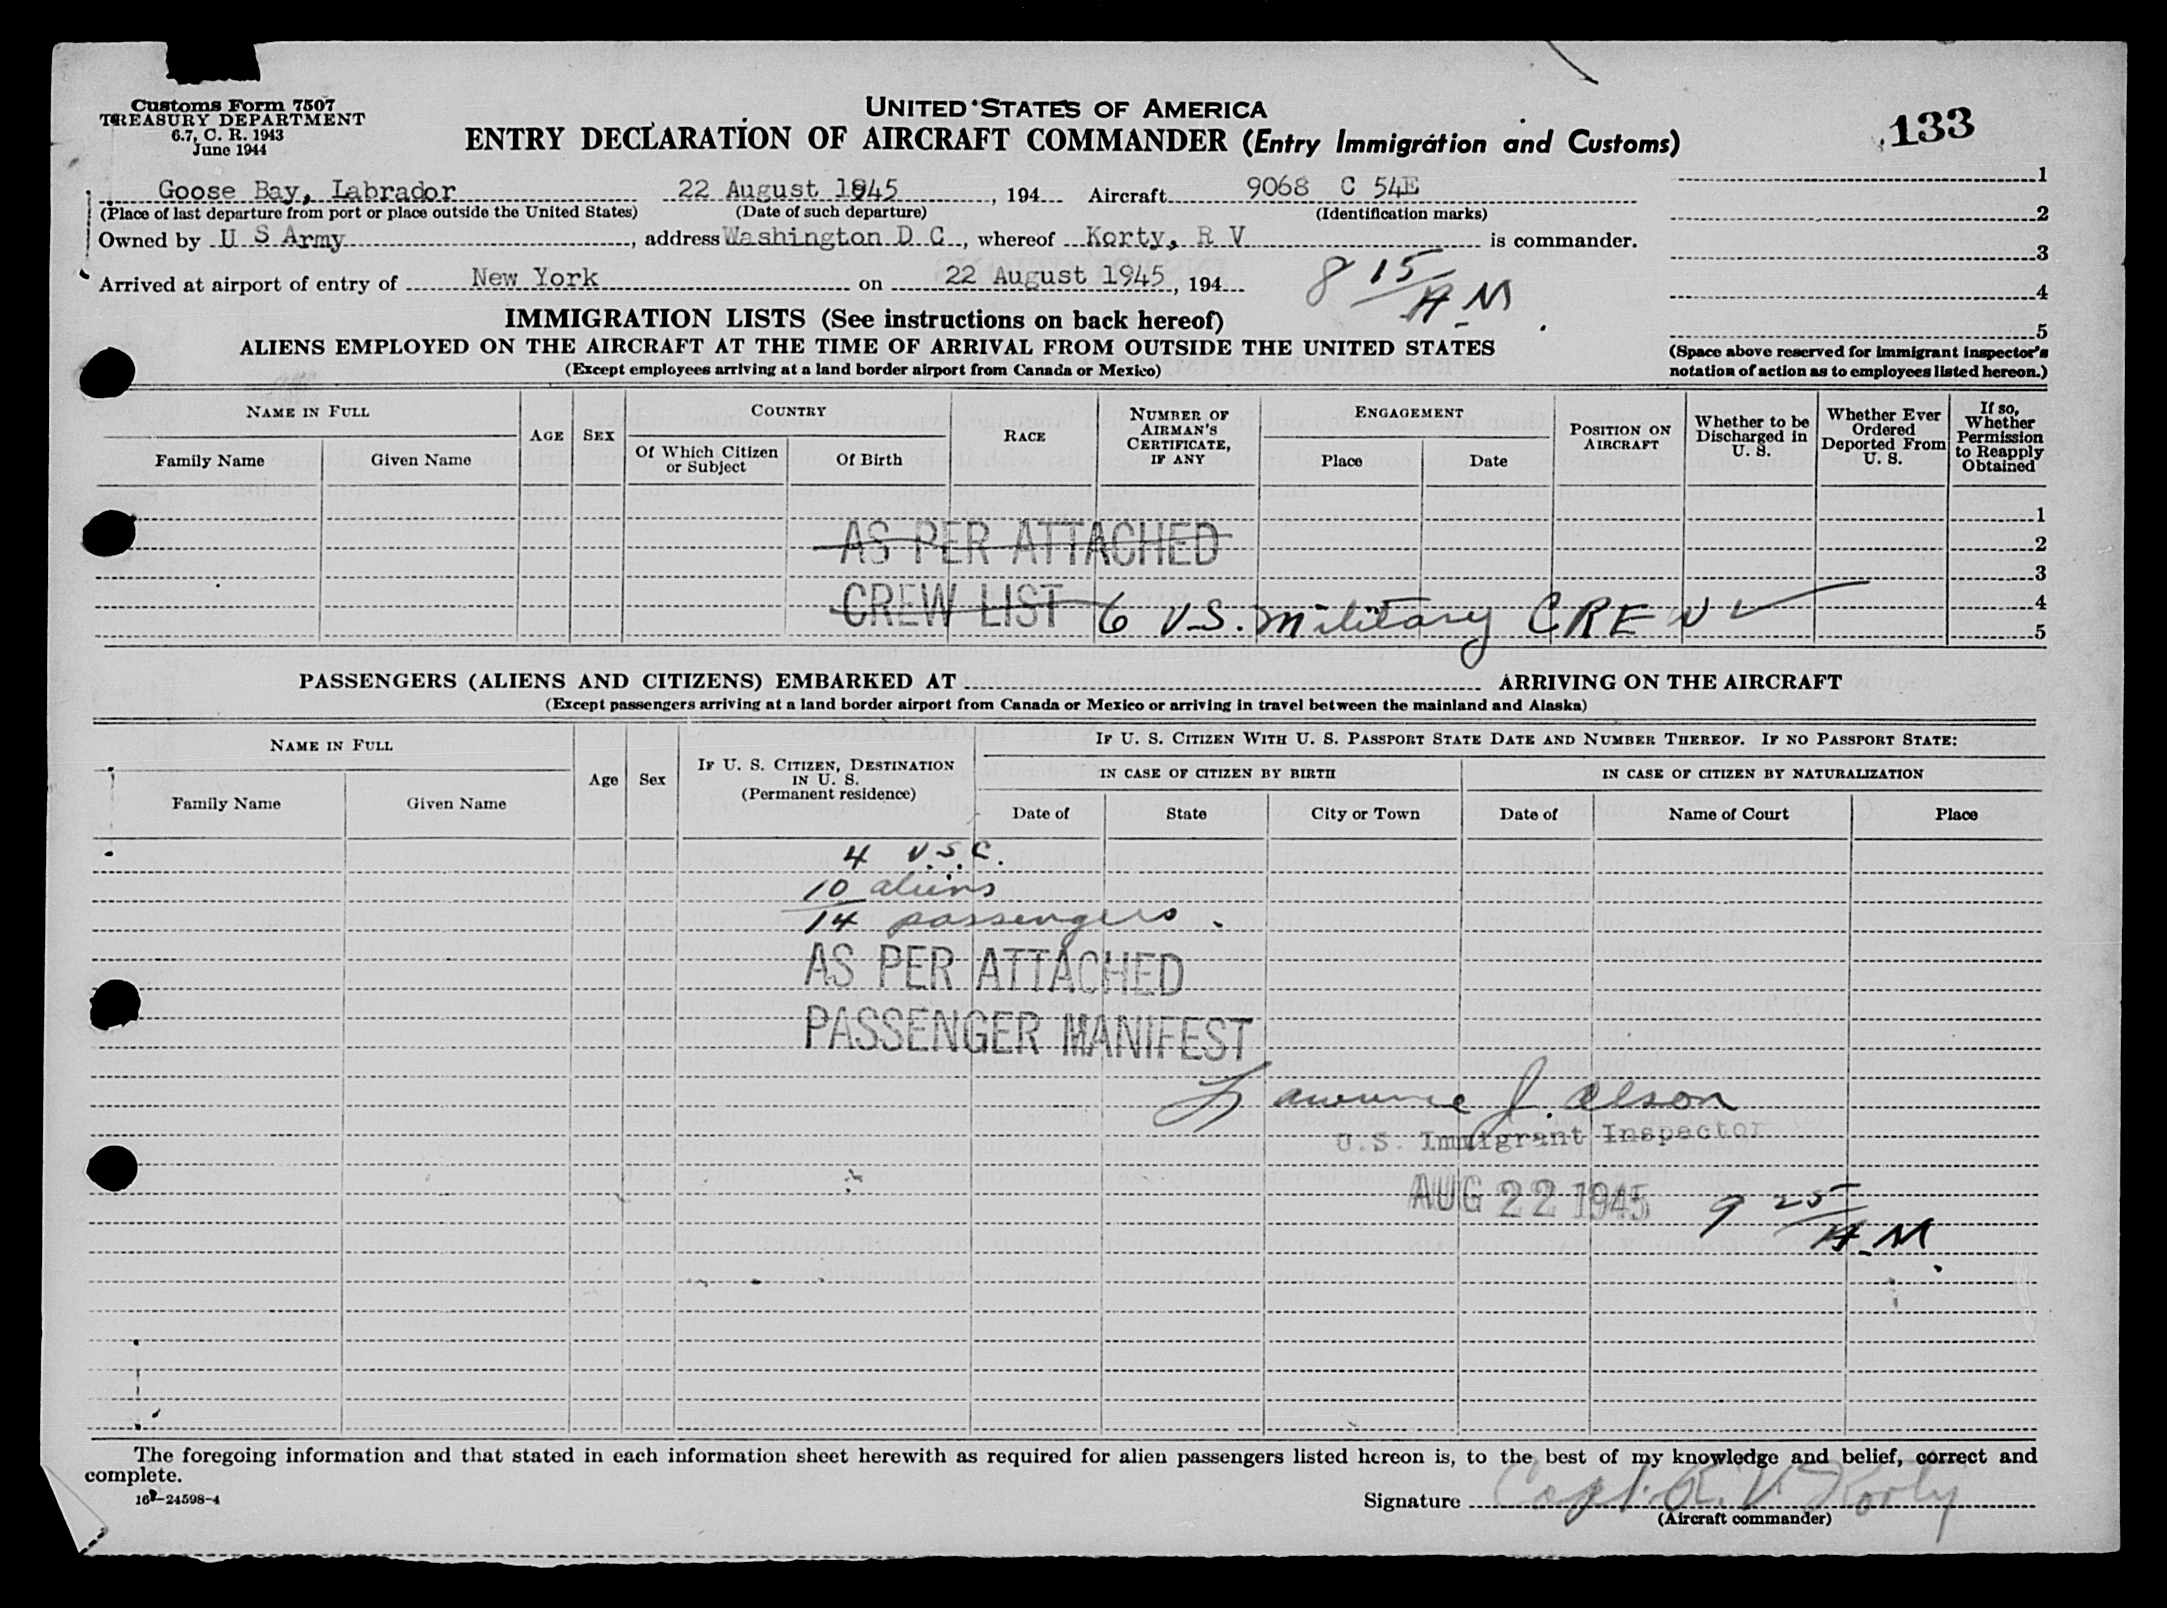 Customs Form 7507
TREASURY DEPARTMENT
6.7, C. R. 1943
June 1944
UNITED STATES OF AMERICA
ENTRY DECLARATION OF AIRCRAFT COMMANDER (Entry Immigration and Customs)
133
Goose Bay, Labrador 22 August 1945, 194 Aircraft 9068 C 54E
(Place of last departure from port or place outside the United States) (Date of such departure) (Identification marks)
Owned by U S Army, address Washington D C, whereof Korty, R V is commander.
Arrived at airport of entry of New York on 22 August 1945, 194
8 15 A.M
1
2
3
4
5
(Space above reserved for Immigrant Inspector's
notation of action as to employees listed hereon.)
IMMIGRATION LISTS (See instructions on back hereof)
ALIENS EMPLOYED ON THE AIRCRAFT AT THE TIME OF ARRIVAL FROM OUTSIDE THE UNITED STATES
(Except employees arriving at a land border airport from Canada or Mexico)
NAME IN FULL
Family Name
Given Name
AGE
SEX
COUNTRY
Of Which Citizen
or Subject
Of Birth
RACE
NUMBER OF
AIRMAN'S
CERTIFICATE,
IF ANY
ENGAGEMENT
Place
Date
POSITION ON
AIRCRAFT
Whether to be
Discharged in
U. S.
Whether Ever
Ordered
Deported From
U. S.
If so,
Whether
Permission
to Reapply
Obtained
1
2
3
4
5
AS PER ATTACHED
CREW LIST 6 U.S. Military CREW
PASSENGERS (ALIENS AND CITIZENS) EMBARKED AT ARRIVING ON THE AIRCRAFT
(Except passengers arriving at a land border airport from Canada or Mexico or arriving in travel between the mainland and Alaska)
NAME IN FULL
Family Name
Given Name
Age
Sex
IF U. S. CITIZEN, DESTINATION
IN U. S.
(Permanent residence)
IF U. S. CITIZEN WITH U. S. PASSPORT STATE DATE AND NUMBER THEREOF. IF NO PASSPORT STATE:
IN CASE OF CITIZEN BY BIRTH
IN CASE OF CITIZEN BY NATURALIZATION
Date of
State
City or Town
Date of
Name of Court
Place
4 U.S.C.
10 aliens
14 passengers.
AS PER ATTACHED
PASSENGER MANIFEST
Lawrence J. Olson
U.S. Immigrant Inspector
AUG 22 1945 9 25 A.M.
The foregoing information and that stated in each information sheet herewith as required for alien passengers listed hereon is, to the best of my knowledge and belief, correct and
complete.
16—24598-4
Signature Capt. R. V. Korty
(Aircraft commander)